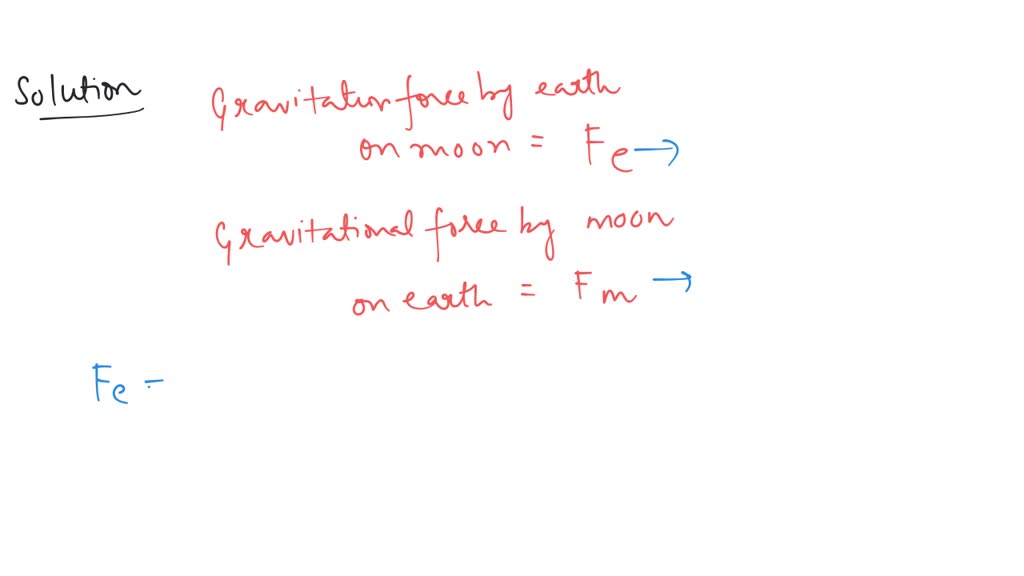 Solution
Gravitation force by earth
on moon = Fe →
Gravitational force by moon
on earth = Fm →
Fe =